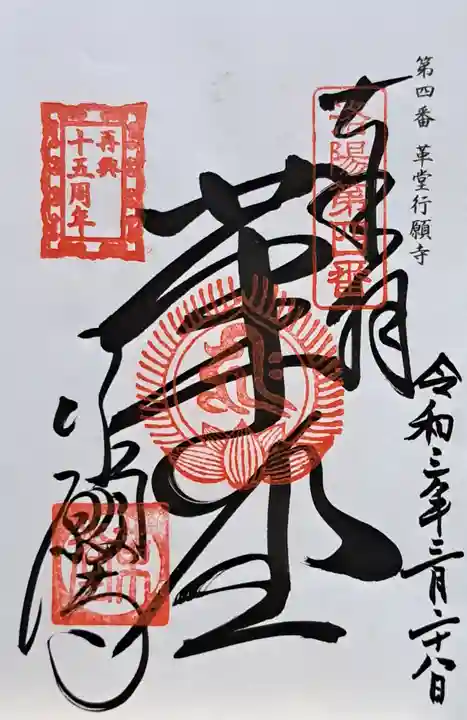 第四番 革堂行願寺
奉拝
洛陽第四番
令和三年三月二十八日
革堂
行願寺
再興
十五周年